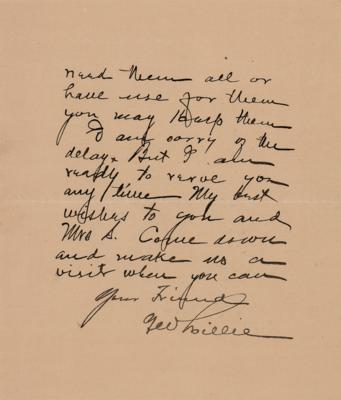 need them all or
have use for them
you may keep them
I am sorry of the
delay. But I am
ready to serve you
any time My best
wishes to you and
Mrs S. Come down
and make us a
visit when you can
Your Friend
GW Lillie